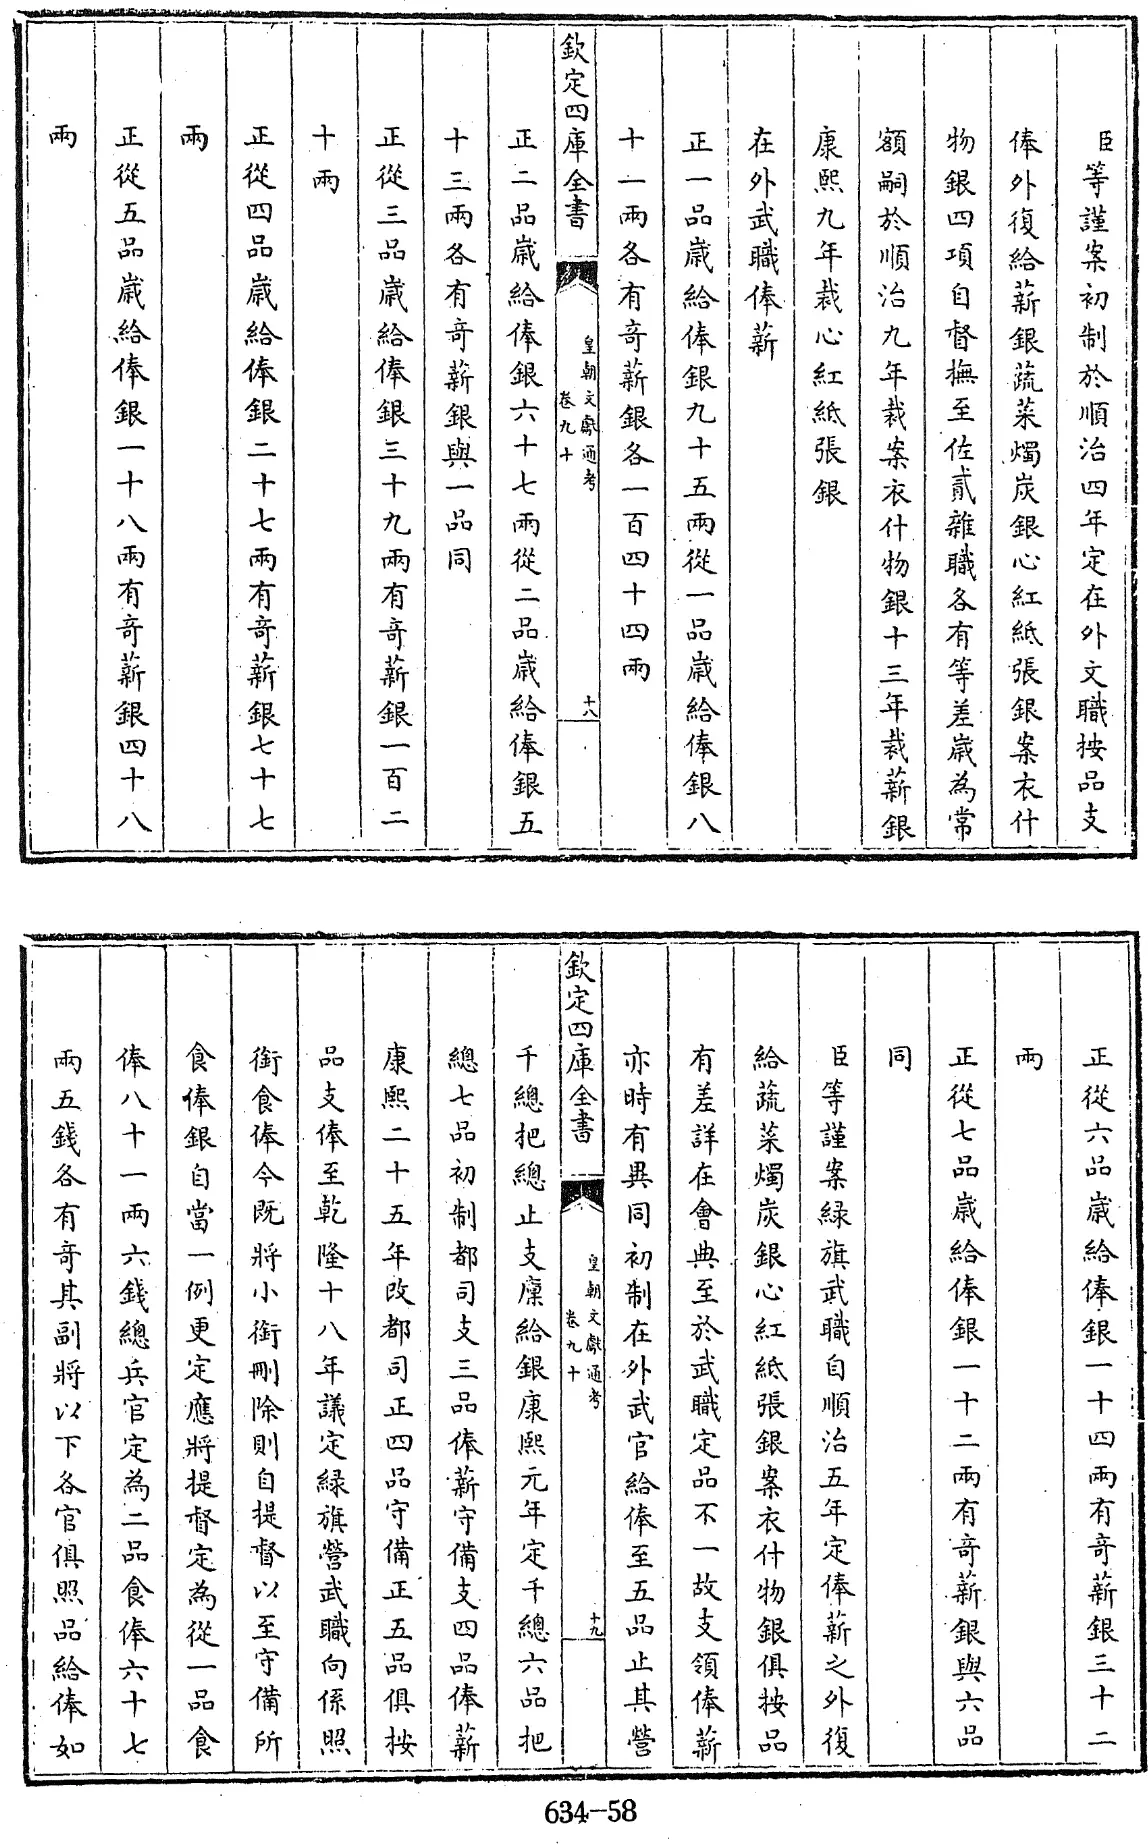 臣等謹案初制於順治四年定在外文職按品支
俸外復給薪銀蔬菜燭炭銀心紅紙張銀案衣什
物銀四項自督撫至佐貳雜職各有等差歳為常
額嗣於順治九年裁案衣什物銀十三年裁薪銀
康熙九年裁心紅紙張銀
在外武職俸薪
正一品歳給俸銀九十五兩從一品歳給俸銀八
十一兩各有竒薪銀各一百四十四兩
欽定四庫全書
皇朝文獻通考
卷九十
十八
正二品歳給俸銀六十七兩從二品歳給俸銀五
十三兩各有竒薪銀與一品同
正從三品歳給俸銀三十九兩有竒薪銀一百二
十兩
正從四品歳給俸銀二十七兩有竒薪銀七十七
兩
正從五品歳給俸銀一十八兩有竒薪銀四十八
兩
正從六品歳給俸銀一十四兩有竒薪銀三十二
兩
正從七品歳給俸銀一十二兩有竒薪銀與六品
同
臣等謹案緑旗武職自順治五年定俸薪之外復
給蔬菜燭炭銀心紅紙張銀案衣什物銀俱按品
有差詳在會典至於武職定品不一故支領俸薪
亦時有異同初制在外武官給俸至五品止其營
欽定四庫全書
皇朝文獻通考
卷九十
十九
千總把總止支廩給銀康熙元年定千總六品把
總七品初制都司支三品俸薪守備支四品俸薪
康熙二十五年改都司正四品守備正五品俱按
品支俸至乾隆十八年議定緑旗營武職向係照
銜食俸今既將小銜刪除則自提督以至守備所
食俸銀自當一例更定應將提督定為從一品食
俸八十一兩六錢總兵官定為二品食俸六十七
兩五錢各有竒其副將以下各官俱照品給俸如
634-58